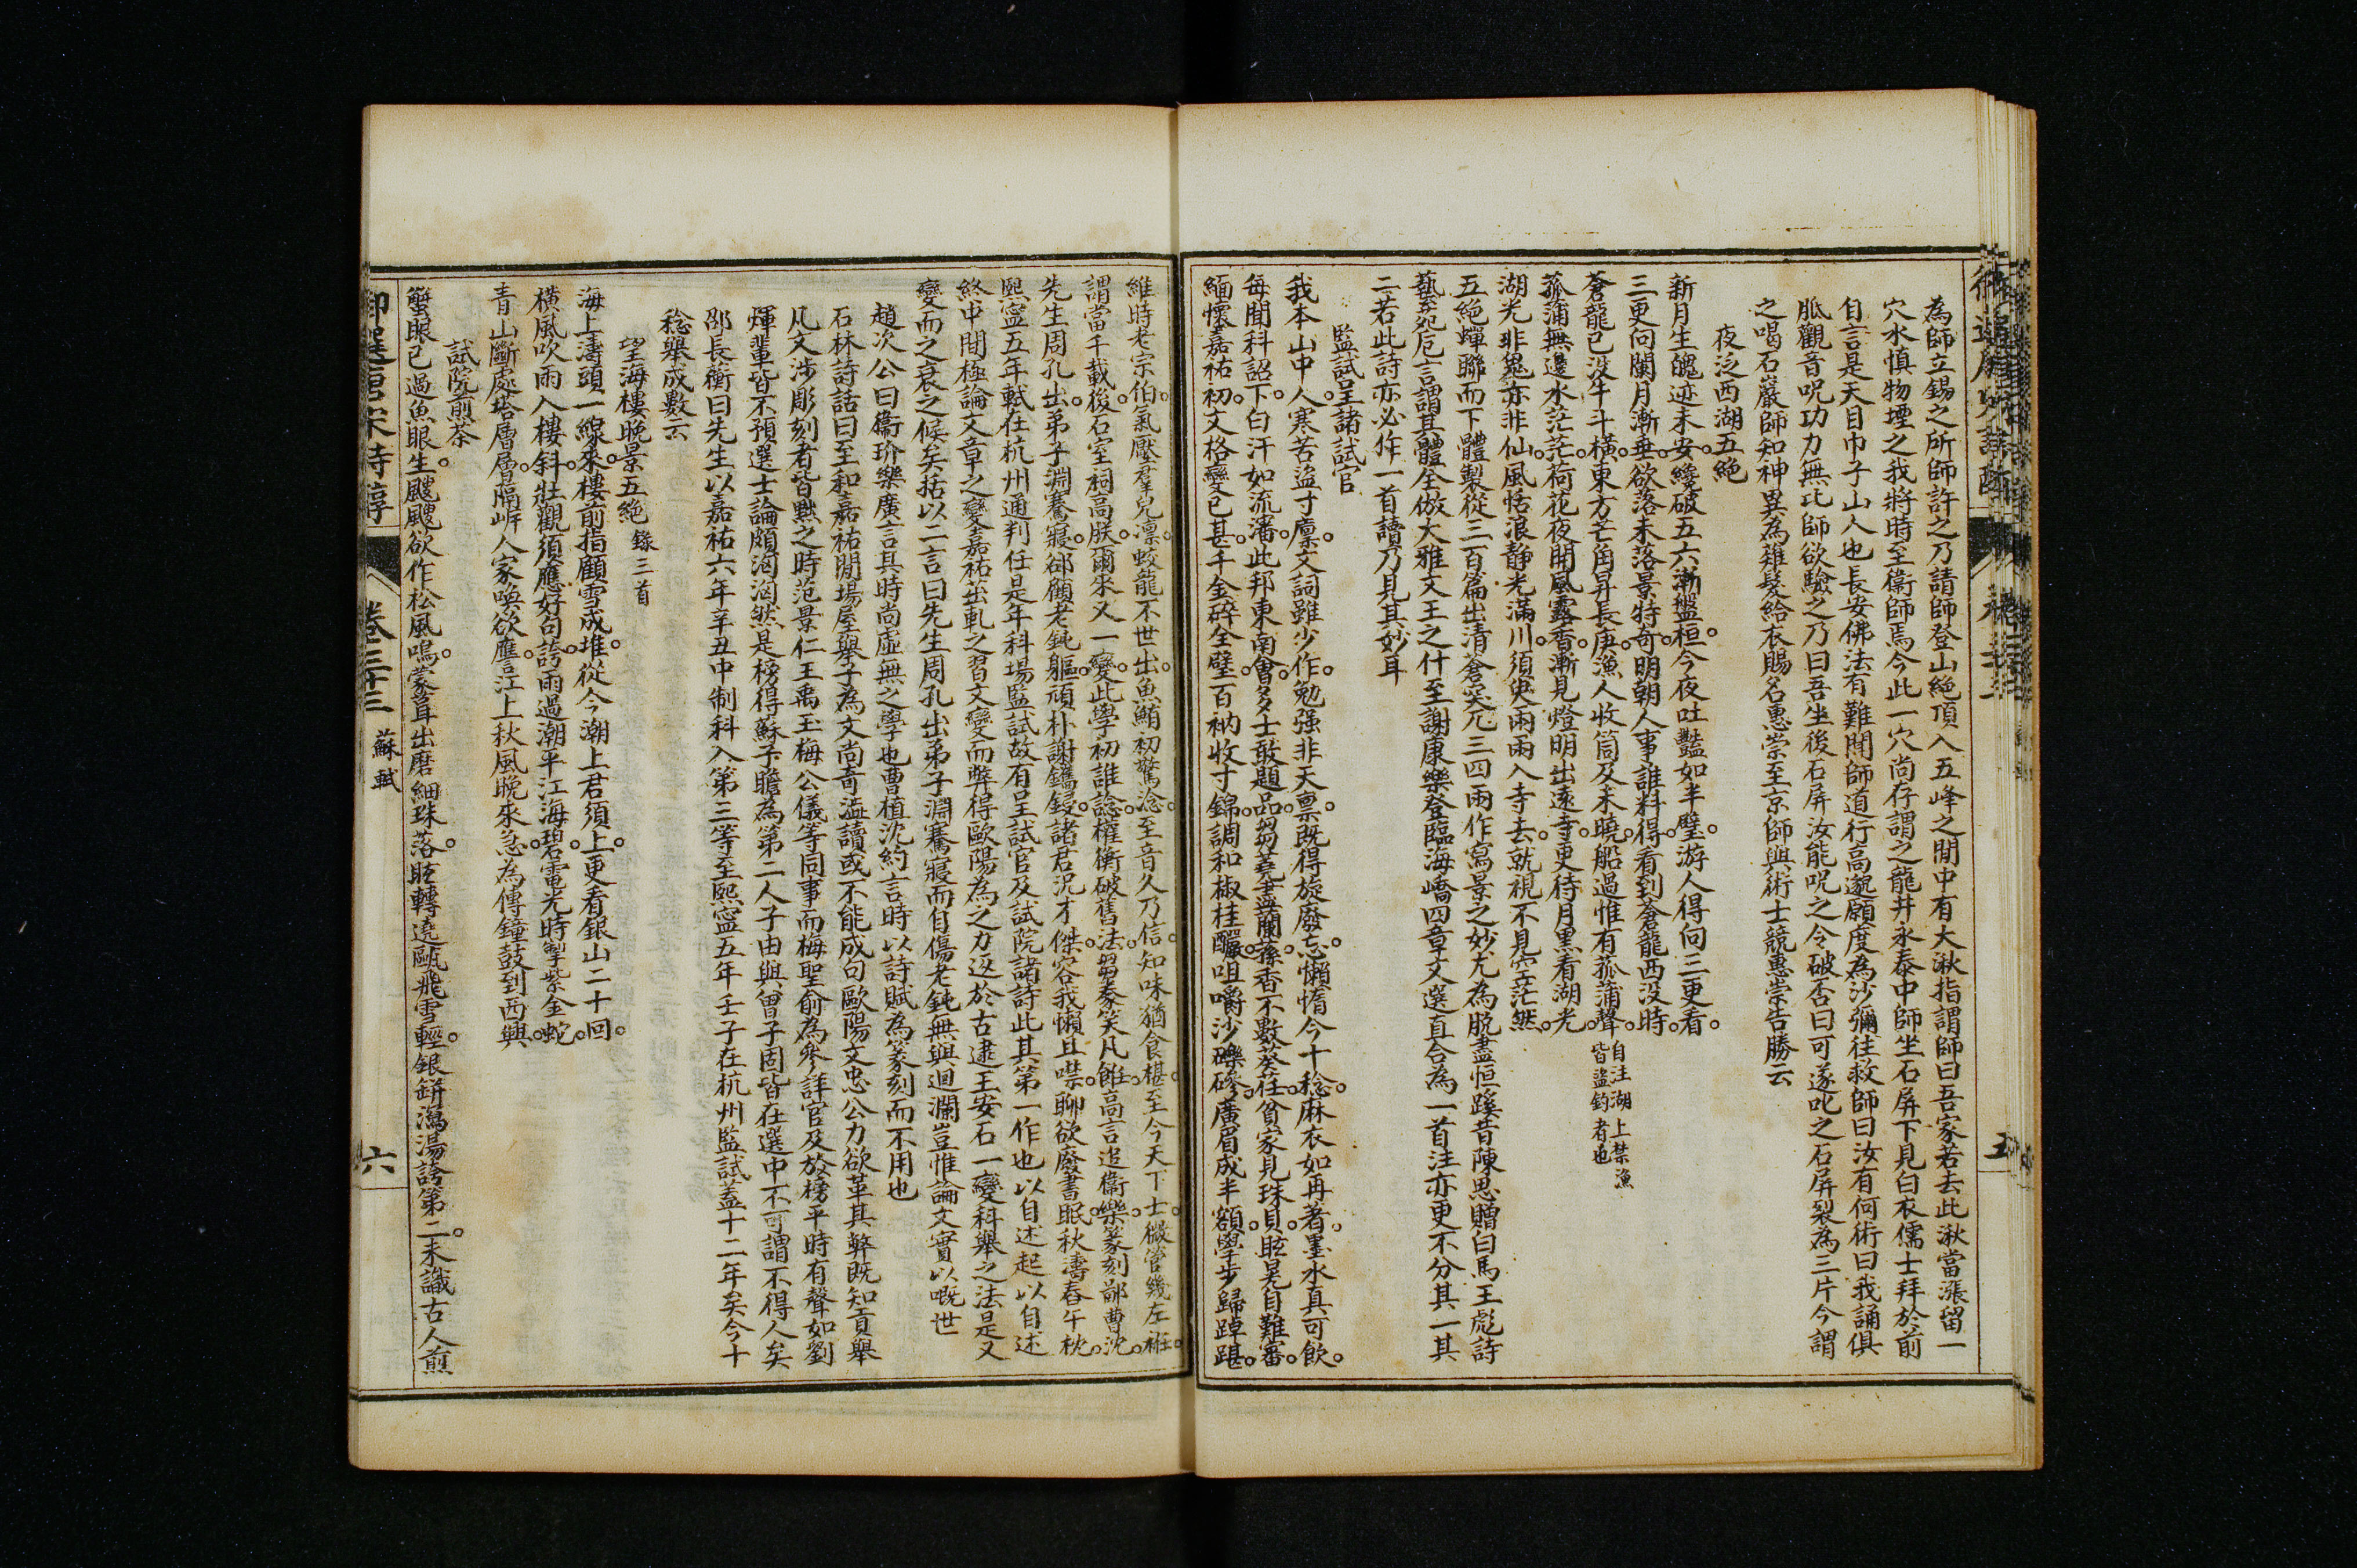 為師立錫之所師許之乃請師登山絕頂入五峰之閒中有大湫指謂師曰吾家若去此湫當漲留一
穴水慎物堙之我將時至衞師焉今此一穴尚存謂之龍井永泰中師坐石屏下見白衣儒士拜於前
自言是天目巾子山人也長安佛法有難聞師道行高邈願度為沙彌往救師曰汝有何術曰我誦俱
胝觀音呪功力無比師欲驗之乃曰吾坐後石屏汝能呪之令破否曰可遂叱之石屏裂為三片今謂
之喝石巖師知神異為雜髮給衣賜名惠崇至京師與術士競惠崇告勝云
夜泛西湖五絕
新月生魄迹未安纔破五六漸盤桓今夜吐豔如半璧游人得向三更看
三更向闌月漸垂欲落未落景特奇明朝人事誰料得看到蒼龍西没時
蒼龍已没牛斗橫東方芒角昇長庚漁人收筒及未曉船過惟有菰蒲聲自注湖上禁漁皆盜釣者也
菰蒲無邊水茫茫荷花夜開風露香漸見燈明出遠寺更待月黑看湖光
湖光非鬼亦非仙風恬浪静光滿川須臾兩兩入寺去就視不見空茫然
五絕蟬聯而下體製從三百篇出清蒼突兀三四兩作寫景之妙尤為脫盡恒蹊昔陳思贈白馬王彪詩
藝苑巵言謂其體全倣大雅文王之什至謝康樂登臨海嶠四章文選直合為一首注亦更不分其一其
二若此詩亦必作一首讀乃見其妙耳
監試呈諸試官
我本山中人寒苦盜寸廪文詞雖少作勉强非天禀既得旋廢忘懶惰今十稔麻衣如再著墨水真可飲
每聞科詔下白汗如流瀋此邦東南會多士敢題品芻蕘盡蘭蓀香不數葵荏貧家見珠貝眩晃自難審
緬懷嘉祐初文格變已甚千金碎全璧百衲收寸錦調和椒桂釅咀嚼沙礫磣廣眉成半額學步歸踔踸
維時老宗伯氣壓羣兒凛蛟龍不世出魚鮪初驚淰至音久乃信知味猶食椹至今天下士微管幾左衽
謂當千載後石室祠高朕爾來又一變此學初誰諗權衡破舊法芻豢笑凡飪高言追衞樂篆刻鄙曹沈
先生周孔出弟子淵騫寢卻顧老鈍軀頑朴謝鐫鋟諸君況才傑容我懶且噤聊欲廢書眠秋濤舂午枕
熙寧五年軾在杭州通判任是年科場監試故有呈試官及試院諸詩此其第一作也以自述起以自述
終中間極論文章之變嘉祐茁軋之習文變而弊得歐陽為之力返於古逮王安石一變科舉之法是又
變而之衰之候矣括以二言曰先生周孔出弟子淵騫寢而自傷老鈍無與迴瀾豈惟論文實以嘅世
趙次公曰衞玠樂廣言其時尚虛無之學也曹植沈約言時以詩賦為篆刻而不用也
石林詩話曰至和嘉祐閒場屋舉子為文尚奇澁讀或不能成句歐陽文忠公力欲革其弊既知貢舉
凡文涉彫刻者皆黜之時范景仁王禹玉梅公儀等同事而梅聖俞為參詳官及放榜平時有聲如劉
煇輩皆不預選士論頗洶洶然是榜得蘇子瞻為第二人子由與曾子固皆在選中不可謂不得人矣
邵長蘅曰先生以嘉祐六年辛丑中制科入第三等至熙寧五年壬子在杭州監試蓋十二年矣今十
稔舉成數云
望海樓晚景五絕 錄三首
海上濤頭一線來樓前指顧雪成堆從今潮上君須上更看銀山二十回
橫風吹雨入樓斜壯觀須應好句誇雨過潮平江海碧電光時掣紫金蛇
青山斷處塔層層隔岸人家喚欲應江上秋風晚來急為傳鐘鼓到西興
試院煎茶
蟹眼已過魚眼生颼颼欲作松風鳴蒙茸出磨細珠落眩轉遶甌飛雪輕銀缾瀉湯誇第二未識古人煎
御選唐宋詩醇 卷三十三 蘇軾 六